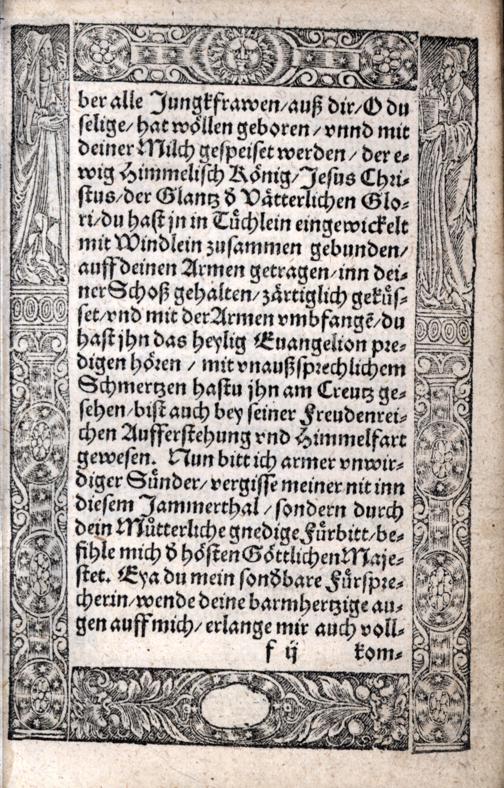 ber alle Jungkfrawen/auß dir/O du
selige/hat wöllen geboren/vnnd mit
deiner Milch gespeiset werden/der e⸗
wig Himmelisch König/Jesus Chri⸗
stus/der Glantz d̕ Vätterlichen Glo⸗
ri/du hast jn in Tüchlein eingewickelt
mit Windlein zusammen gebunden/
auff deinen Armen getragen/inn dei⸗
ner Schoß gehalten/zärtiglich geküs⸗
set/vnd mit der Armen vmbfangē/du
hast jhn das heylig Euangelion pre⸗
digen hören/mit vnaußsprechlichem
Schmertzen hastu jhn am Creutz ge⸗
sehen/bist auch bey seiner Freudenrei⸗
chen Aufferstehung vnd Himmelfart
gewesen. Nun bitt ich armer vnwir⸗
diger Sünder/vergisse meiner nit inn
diesem Jammerthal/sondern durch
dein Mütterliche gnedige Fürbitt/be⸗
fihle mich d̕ hösten Göttlichen Maje⸗
stet. Eya du mein sond̕bare Fürspre⸗
cherin/wende deine barmhertzige au⸗
gen auff mich/erlange mir auch voll⸗
f ij kom⸗